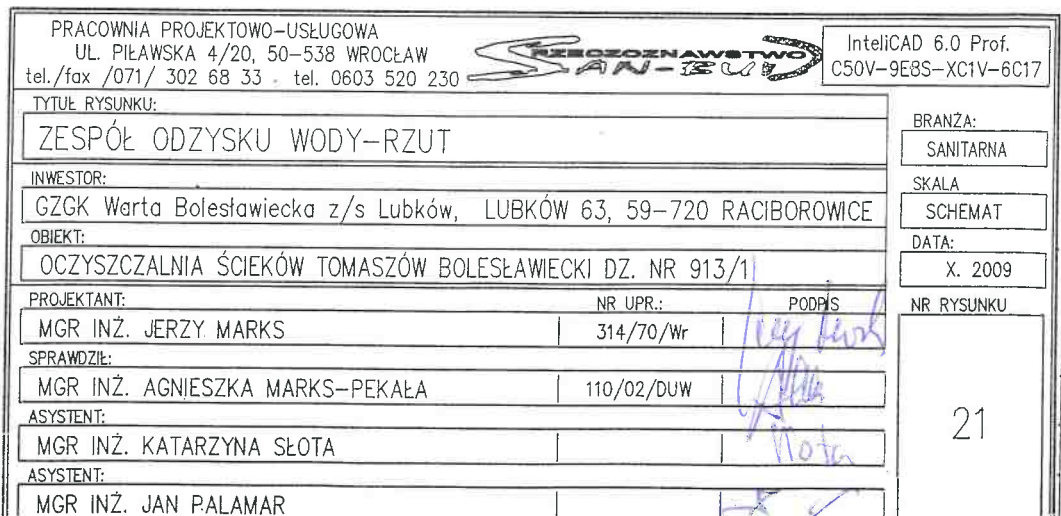 PRACOWNIA PROJEKTOWO-USŁUGOWA
UL. PIŁAWSKA 4/20, 50-538 WROCŁAW
tel./fax /071/ 302 68 33 tel. 0603 520 230
RZECZOZNAWSTWO
SAN-BUD
InteliCAD 6.0 Prof.
C50V-9E8S-XC1V-6C17
TYTUŁ RYSUNKU:
ZESPÓŁ ODZYSKU WODY-RZUT
BRANŻA:
SANITARNA
INWESTOR:
GZGK Warta Bolesławiecka z/s Lubków, LUBKÓW 63, 59-720 RACIBOROWICE
SKALA
SCHEMAT
OBIEKT:
OCZYSZCZALNIA ŚCIEKÓW TOMASZÓW BOLESŁAWIECKI DZ. NR 913/1
DATA:
X. 2009
PROJEKTANT: NR UPR.: PODPIS
MGR INŻ. JERZY MARKS 314/70/Wr
SPRAWDZIŁ:
MGR INŻ. AGNIESZKA MARKS-PEKAŁA 110/02/DUW
ASYSTENT:
MGR INŻ. KATARZYNA SŁOTA
ASYSTENT:
MGR INŻ. JAN PALAMAR
NR RYSUNKU
21